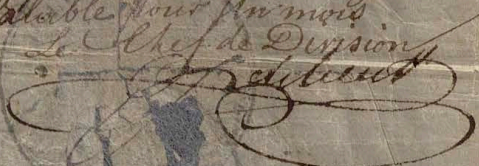 valable pour un mois
Le Chef de Division